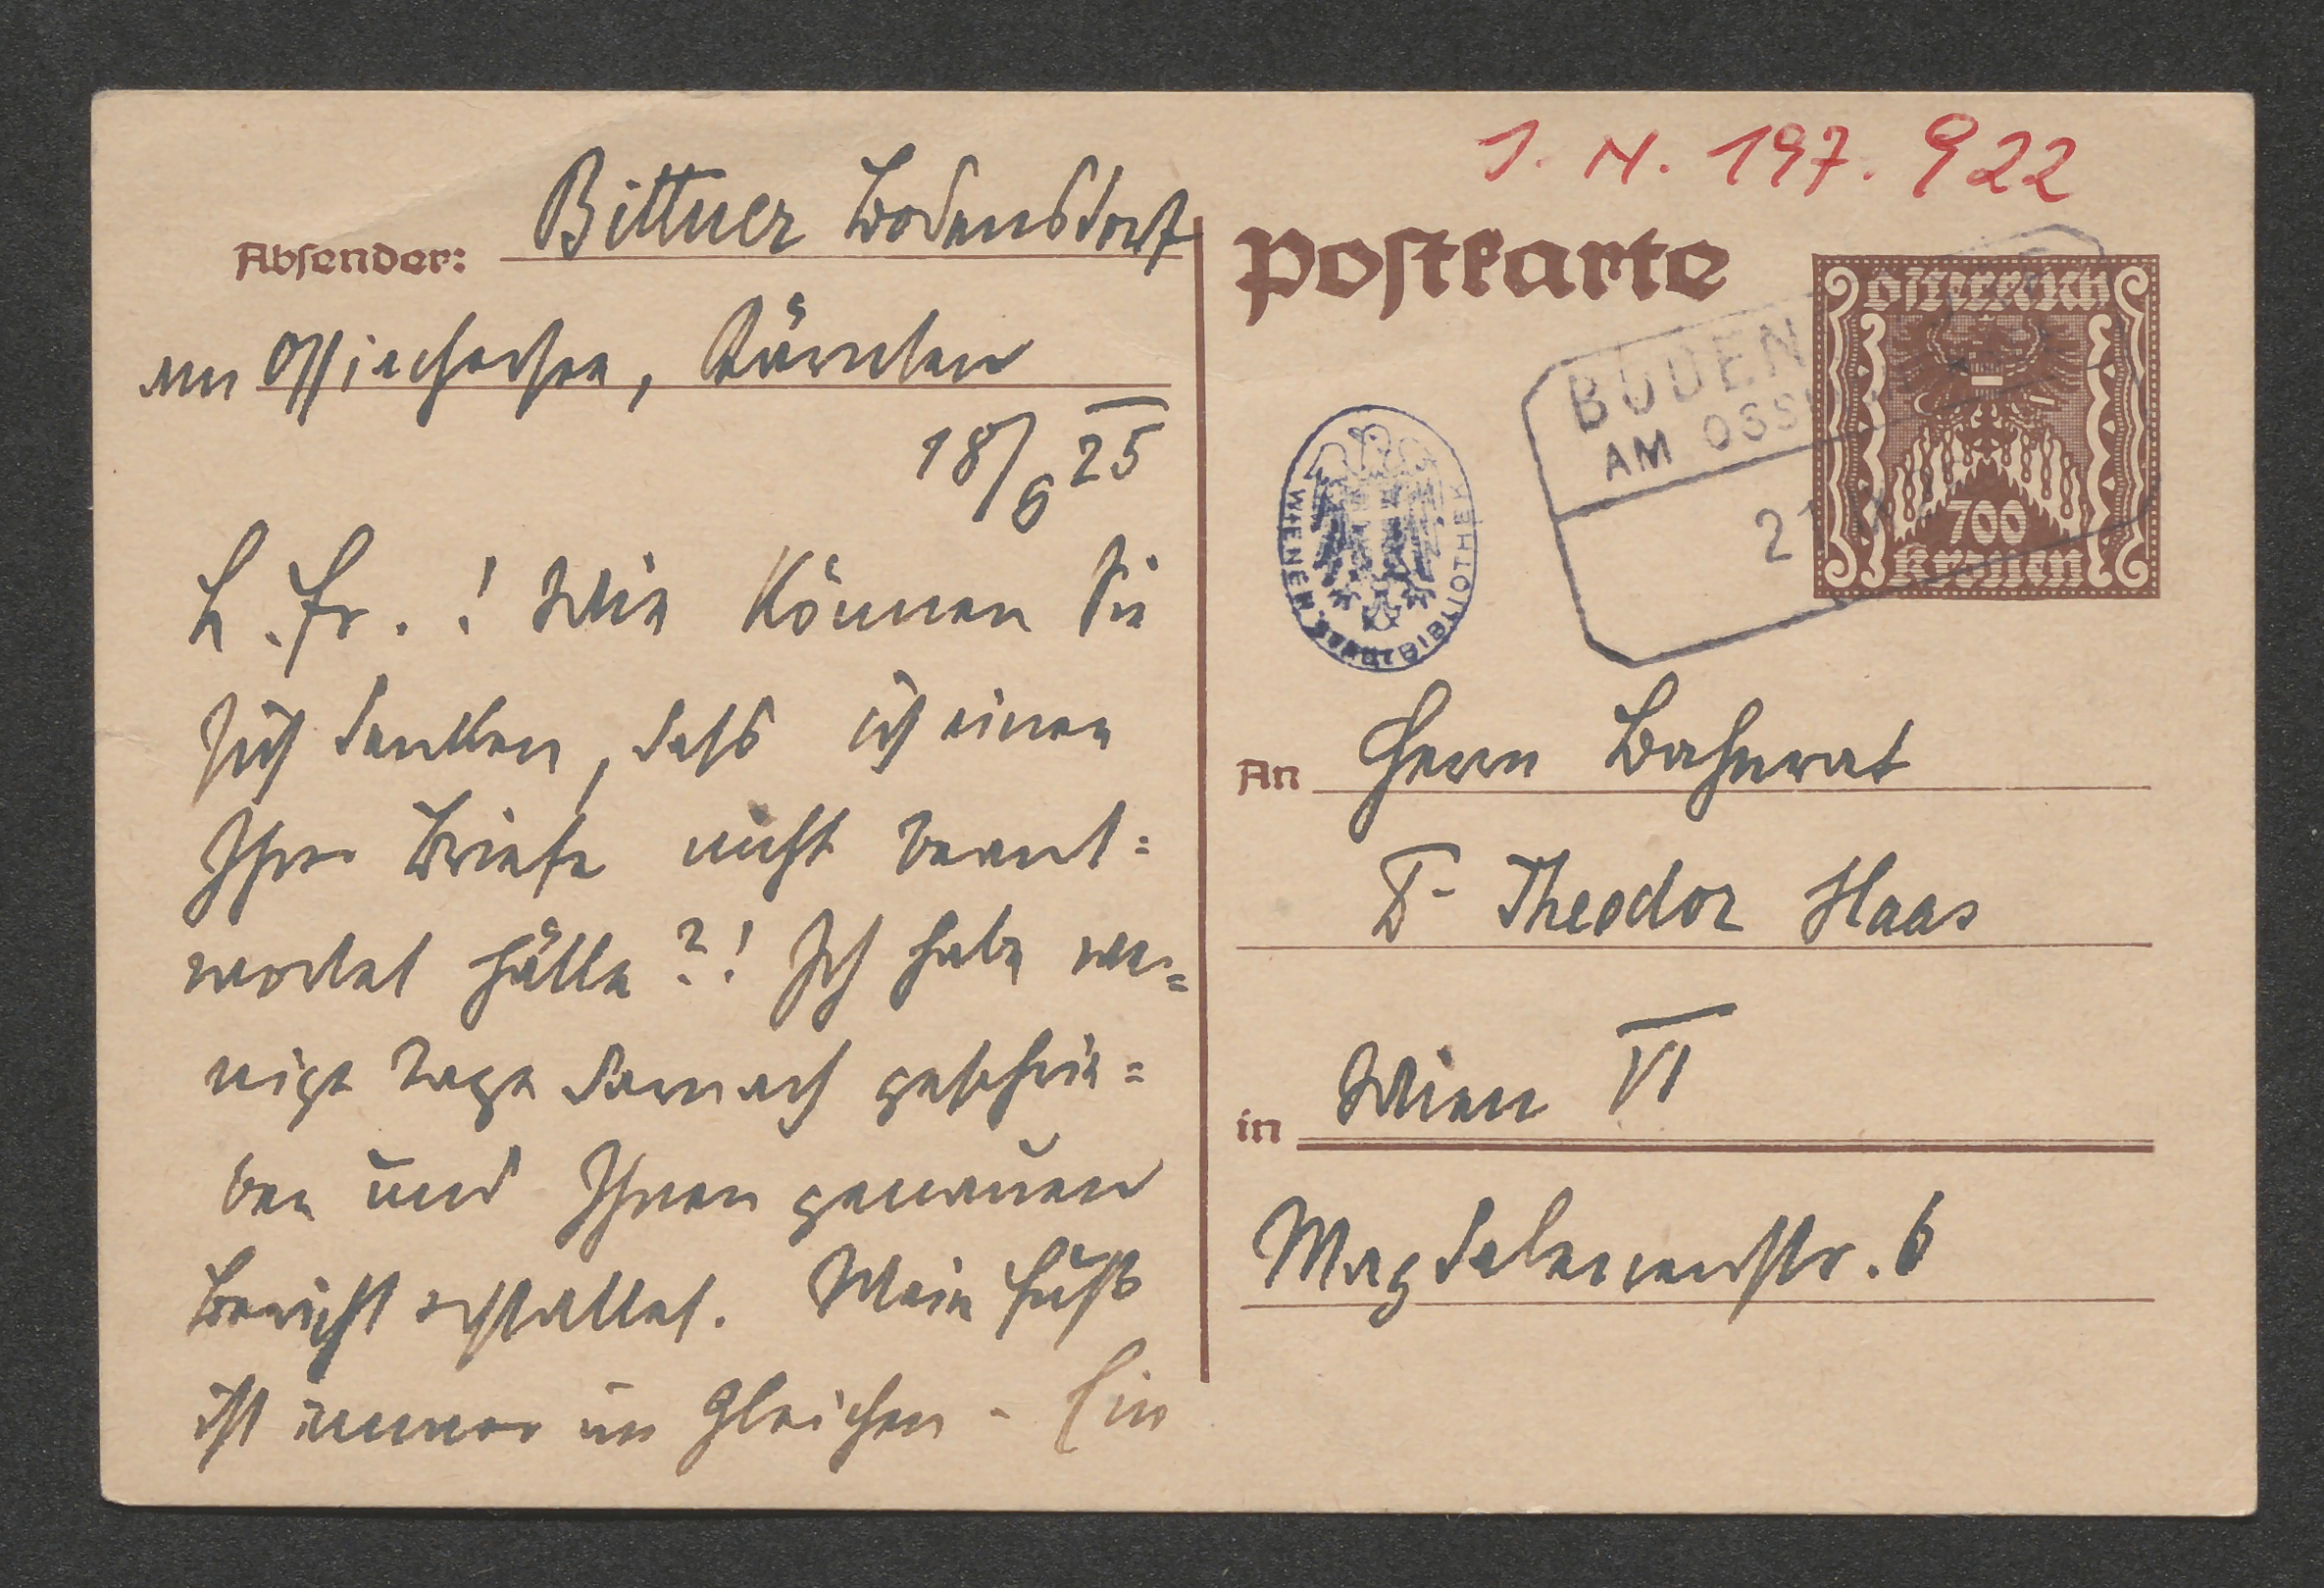 J. N. 197.922
Absender: Bittner Bodensdorf
am Ossiachersee, Kärnten
18/6 25
L. Fr.! Wie können Sie
sich denken, dass ich einen
Ihrer Briefe nicht beant=
wortet hätte?! Ich habe we=
nige Tage darnach geschrie=
ben und Ihnen genauen
Bericht erstattet. Mein Fuß
ist immer im Gleichen - Ein
Postkarte
Österreich
700
Kronen
BODEN
AM OSSI
21
WIENER BIBLIOTHEK
An Herrn Bahnrat
Dr Theodor Haas
in Wien VI
Magdalenenstr. 6